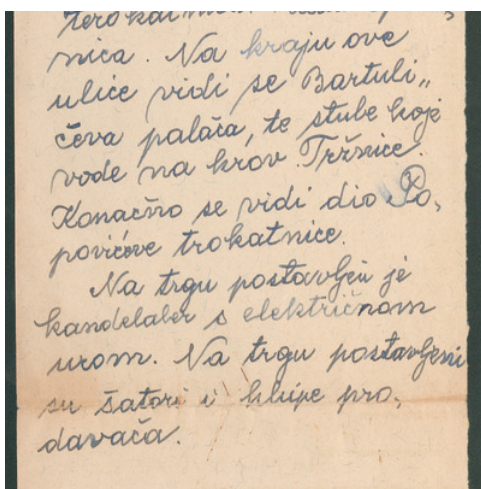 nica. Na kraju ove
ulice vidi se Bartuli„
ćeva palača, te stube koje
vode na krov Tržnice.
Konačno se vidi dio Po„
povićeve trokatnice.
Na trgu postavljen je
kandelaber s električnom
urom. Na trgu postavljeni
su šatori i klupe pro„
davača.